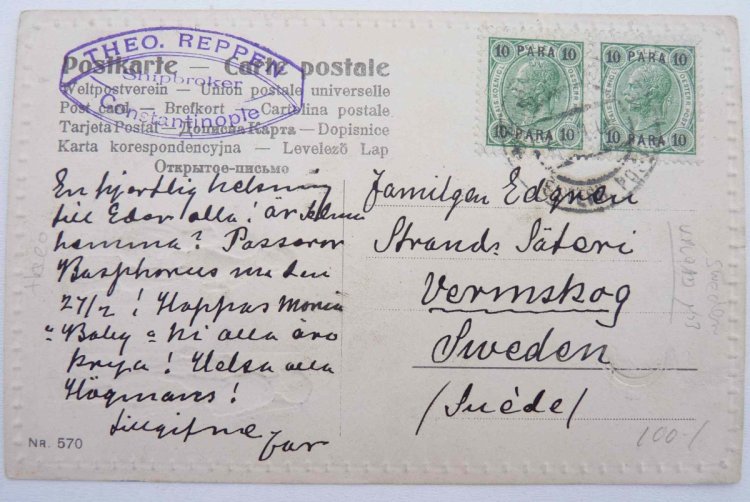 THEO. REPPEN
Shipbroker
Constantinople
Postkarte — Carte postale
Weltpostverein — Union postale universelle
Post card — Brefkort — Cartolina postale
Tarjeta Postal — Дописна Карта — Dopisnice
Karta korespondencyjna — Levelező Lap
Открытое-письмо
10 PARA 10
10 PARA 10
10 PARA 10
10 PARA 10
En hjertlig helsning
till Eder alla! är
hemma? Passerar
Bosphorus den
27/2! Hoppas Maria
"Baby" o Ni alla äro
krya! Helsa alla
Högmans!
Tillgifne
Familjen Edgren
Strands Säteri
Vermskog
Sweden
(Suède)
NR. 570
Theo
Sweden
100-/